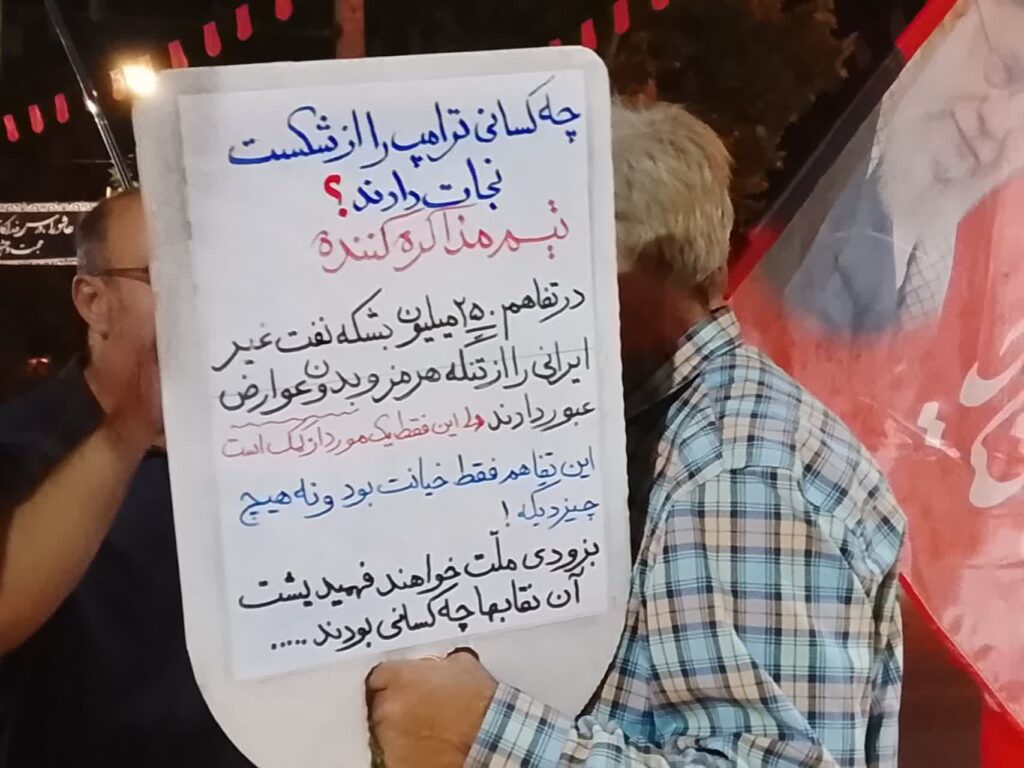 چه کسانی ترامپ را از شکست
نجات دادند؟
تیم مذاکره کننده
در تفاهم ۲۵۰ میلیون بشکه نفت غیر
ایرانی را از تنگه هرمز و بدون عوارض
عبور دادند ولی این فقط یک مورد از کمک است
این تفاهم فقط خیانت بود و نه هیچ
چیز دیگه !
بزودی ملّت خواهند فهمید پشت
آن نقابها چه کسانی بودند .....